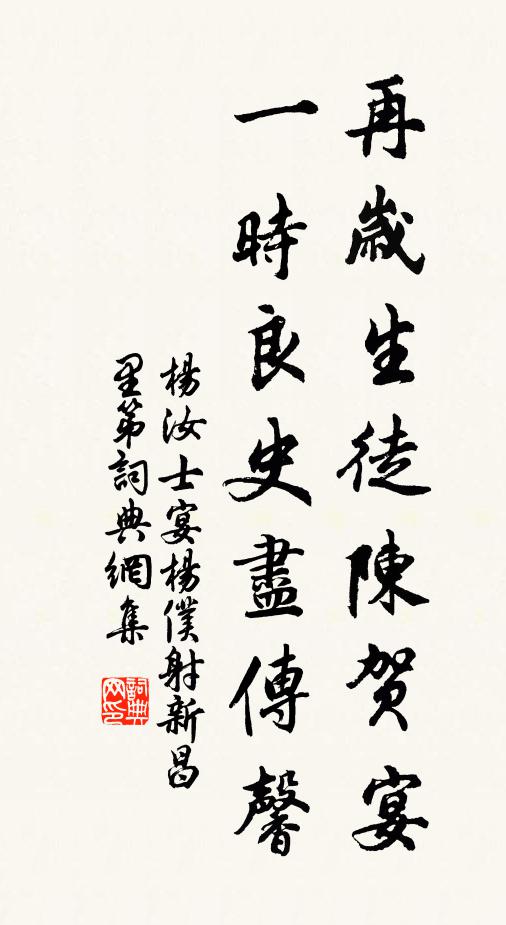 再歲生徒陳賀宴
一時良史盡傳馨
楊汝士宴楊僕射新昌
里第詞典網集
詞典网印